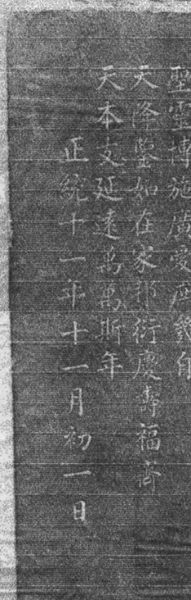 聖靈博施廣愛庶類自
天降鑒如在家邦衍慶壽福齊
天本支延遠萬萬斯年
正統十一年十一月初一日